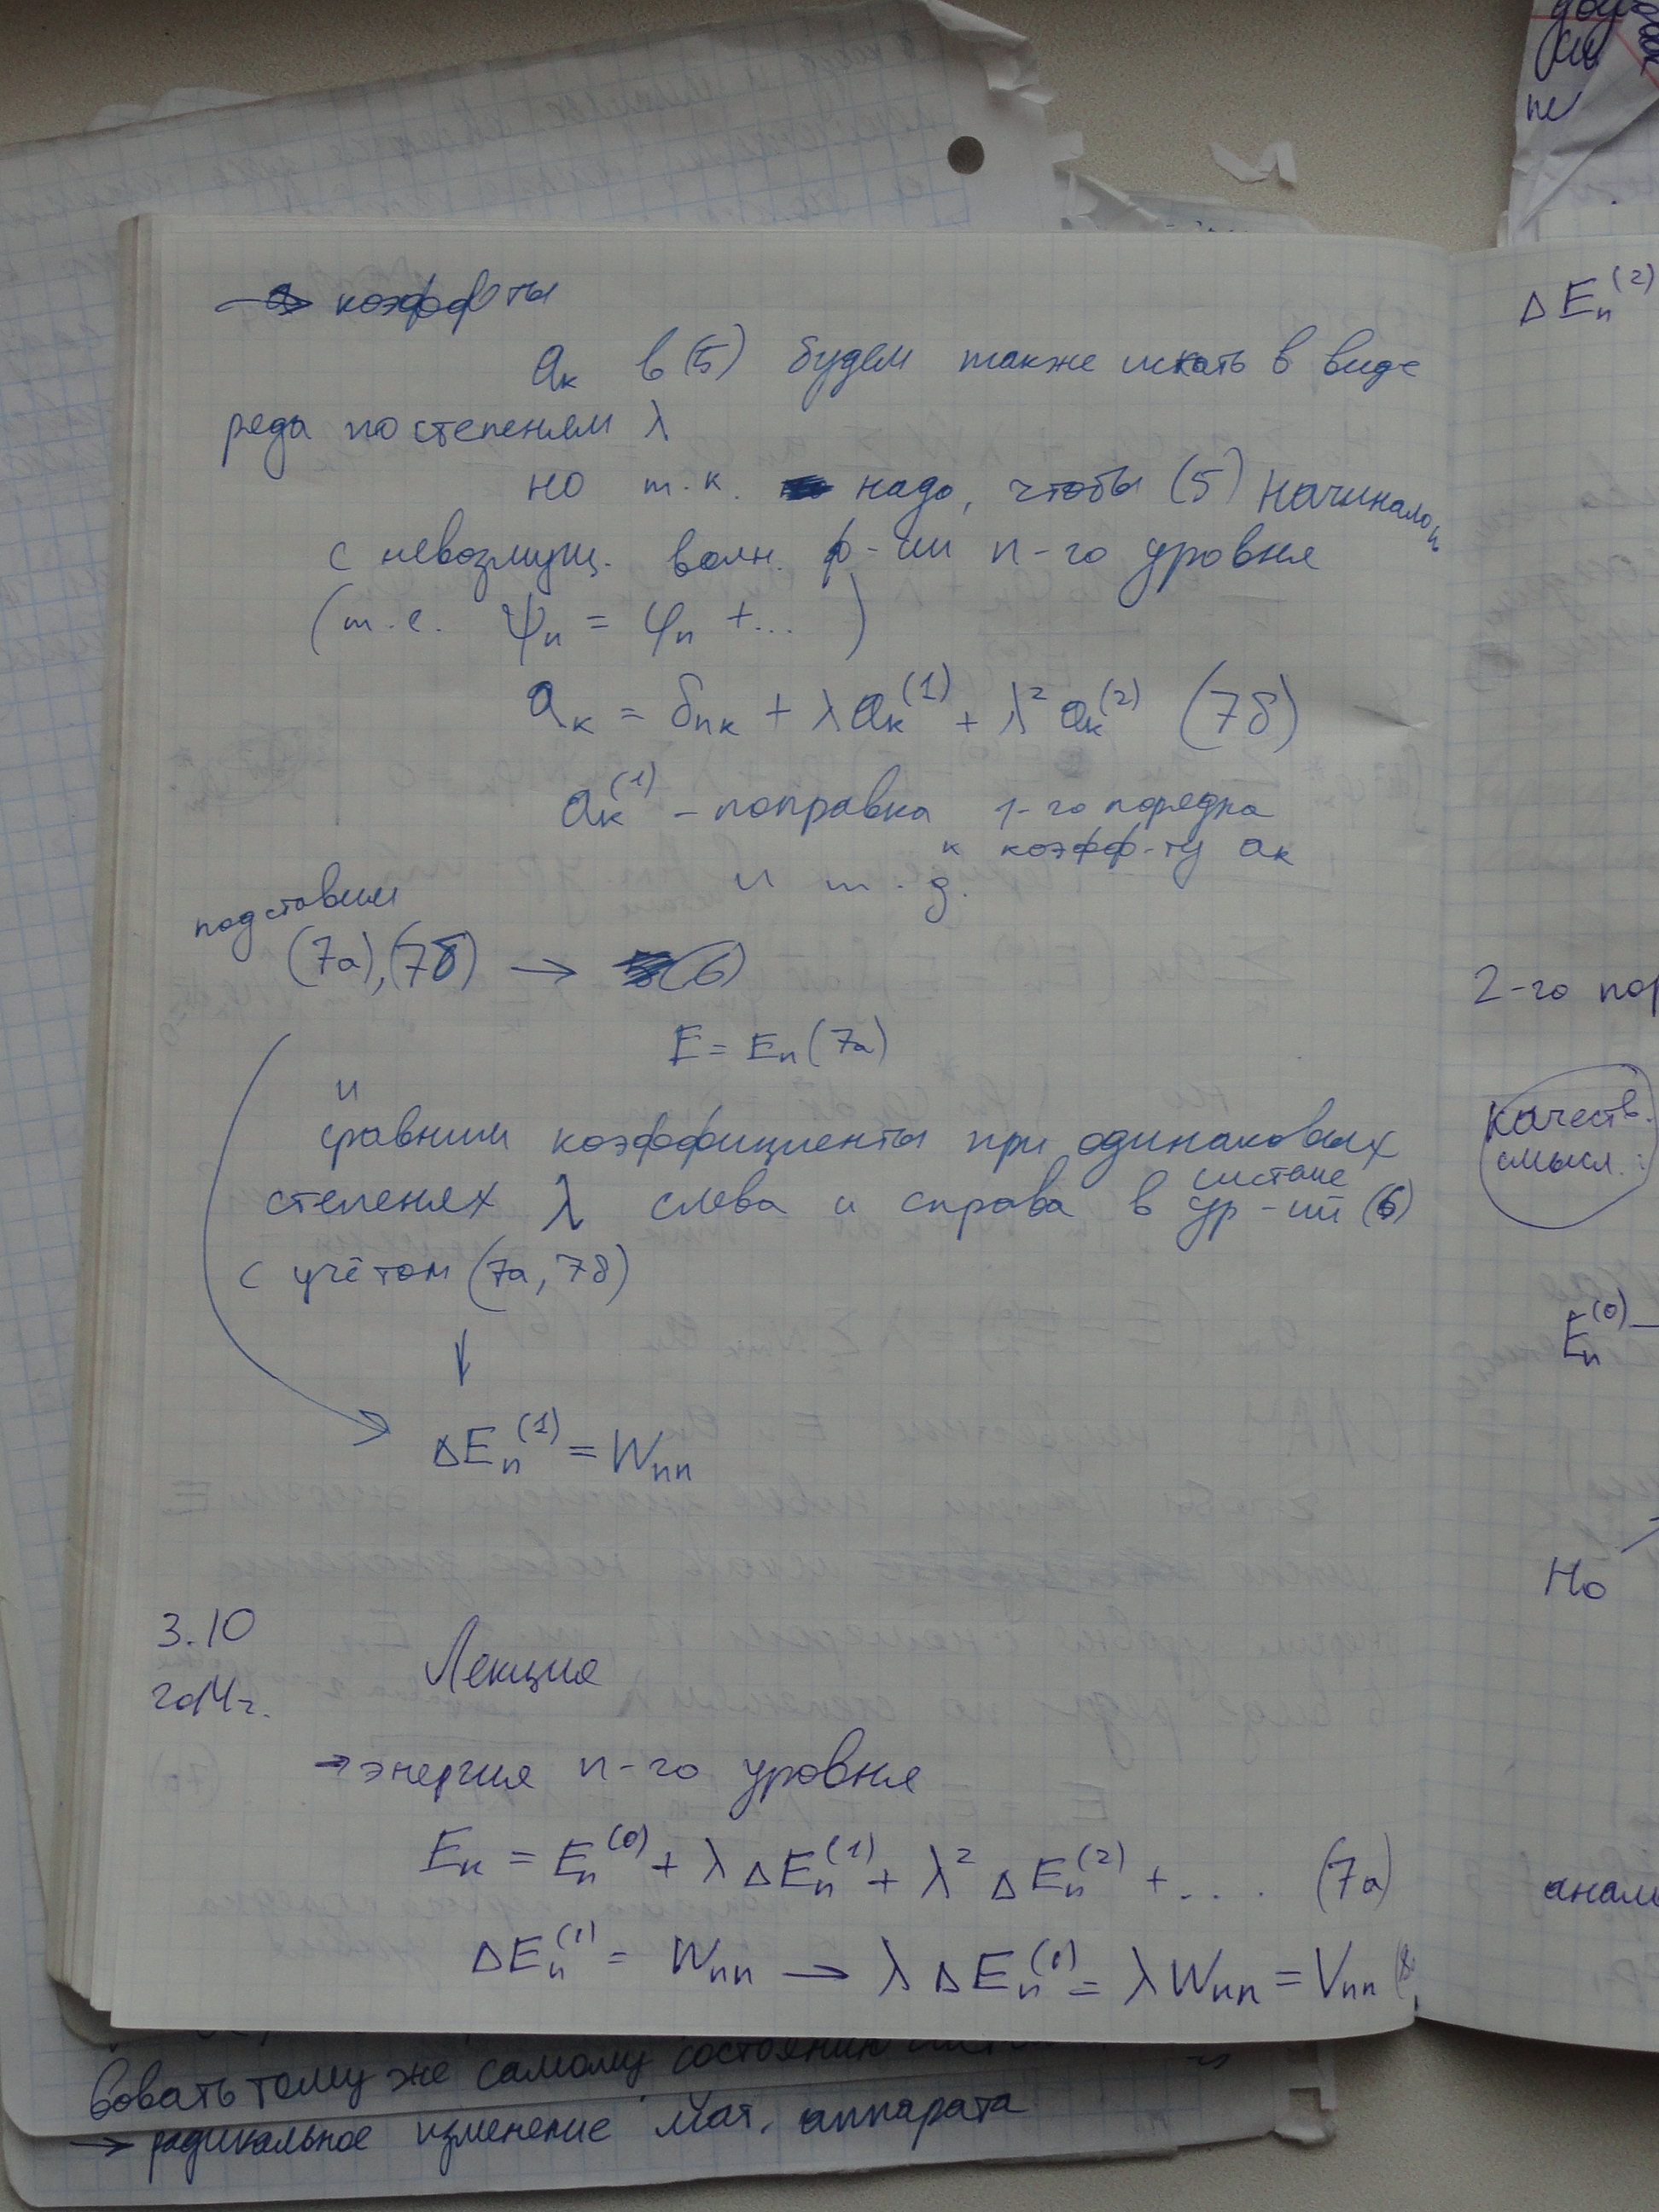 → коэфф-ты
aₖ в (5) будем также искать в виде
ряда по степеням λ
но т.к. надо, чтобы (5) начиналось
с невозмущ. волн. ф-ии n-го уровня
(т.е. ψₙ = φₙ + ... )
aₖ = δₙₖ + λaₖ⁽¹⁾ + λ²aₖ⁽²⁾ (7б)
aₖ⁽¹⁾ – поправка 1-го порядка
к коэфф-ту aₖ
и т.д.
подставим
(7а), (7б) → (6)
E = Eₙ (7а)
и
сравним коэффициенты при одинаковых
степенях λ слева и справа в системе ур-ий (6)
с учётом (7а, 7б)
↓
ΔEₙ⁽¹⁾ = Wₙₙ
3.10
2014г.
Лекция
→ энергия n-го уровня
Eₙ = Eₙ⁽⁰⁾ + λΔEₙ⁽¹⁾ + λ²ΔEₙ⁽²⁾ + .... (7а)
ΔEₙ⁽¹⁾ = Wₙₙ → λΔEₙ⁽¹⁾ = λWₙₙ = Vₙₙ
ΔEₙ⁽²⁾
2-го пор
качеств.
смысл.:
Eₙ⁽⁰⁾
H₀
анал
вовать тому же самому состоянию
→ радикальное изменение мат. аппарата